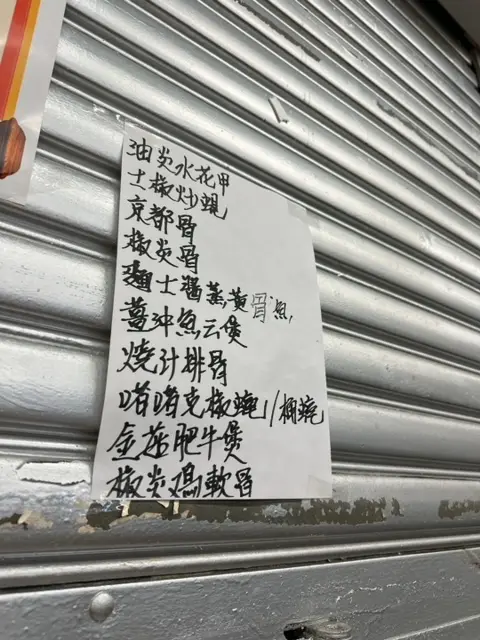 油炎水花甲
士椒炒蜆
京都骨
椒炎骨
士醬蒸黄骨魚
薑沖魚云煲
燒汁排骨
啫啫克椒
金菇肥牛煲
椒炎鳮軟骨